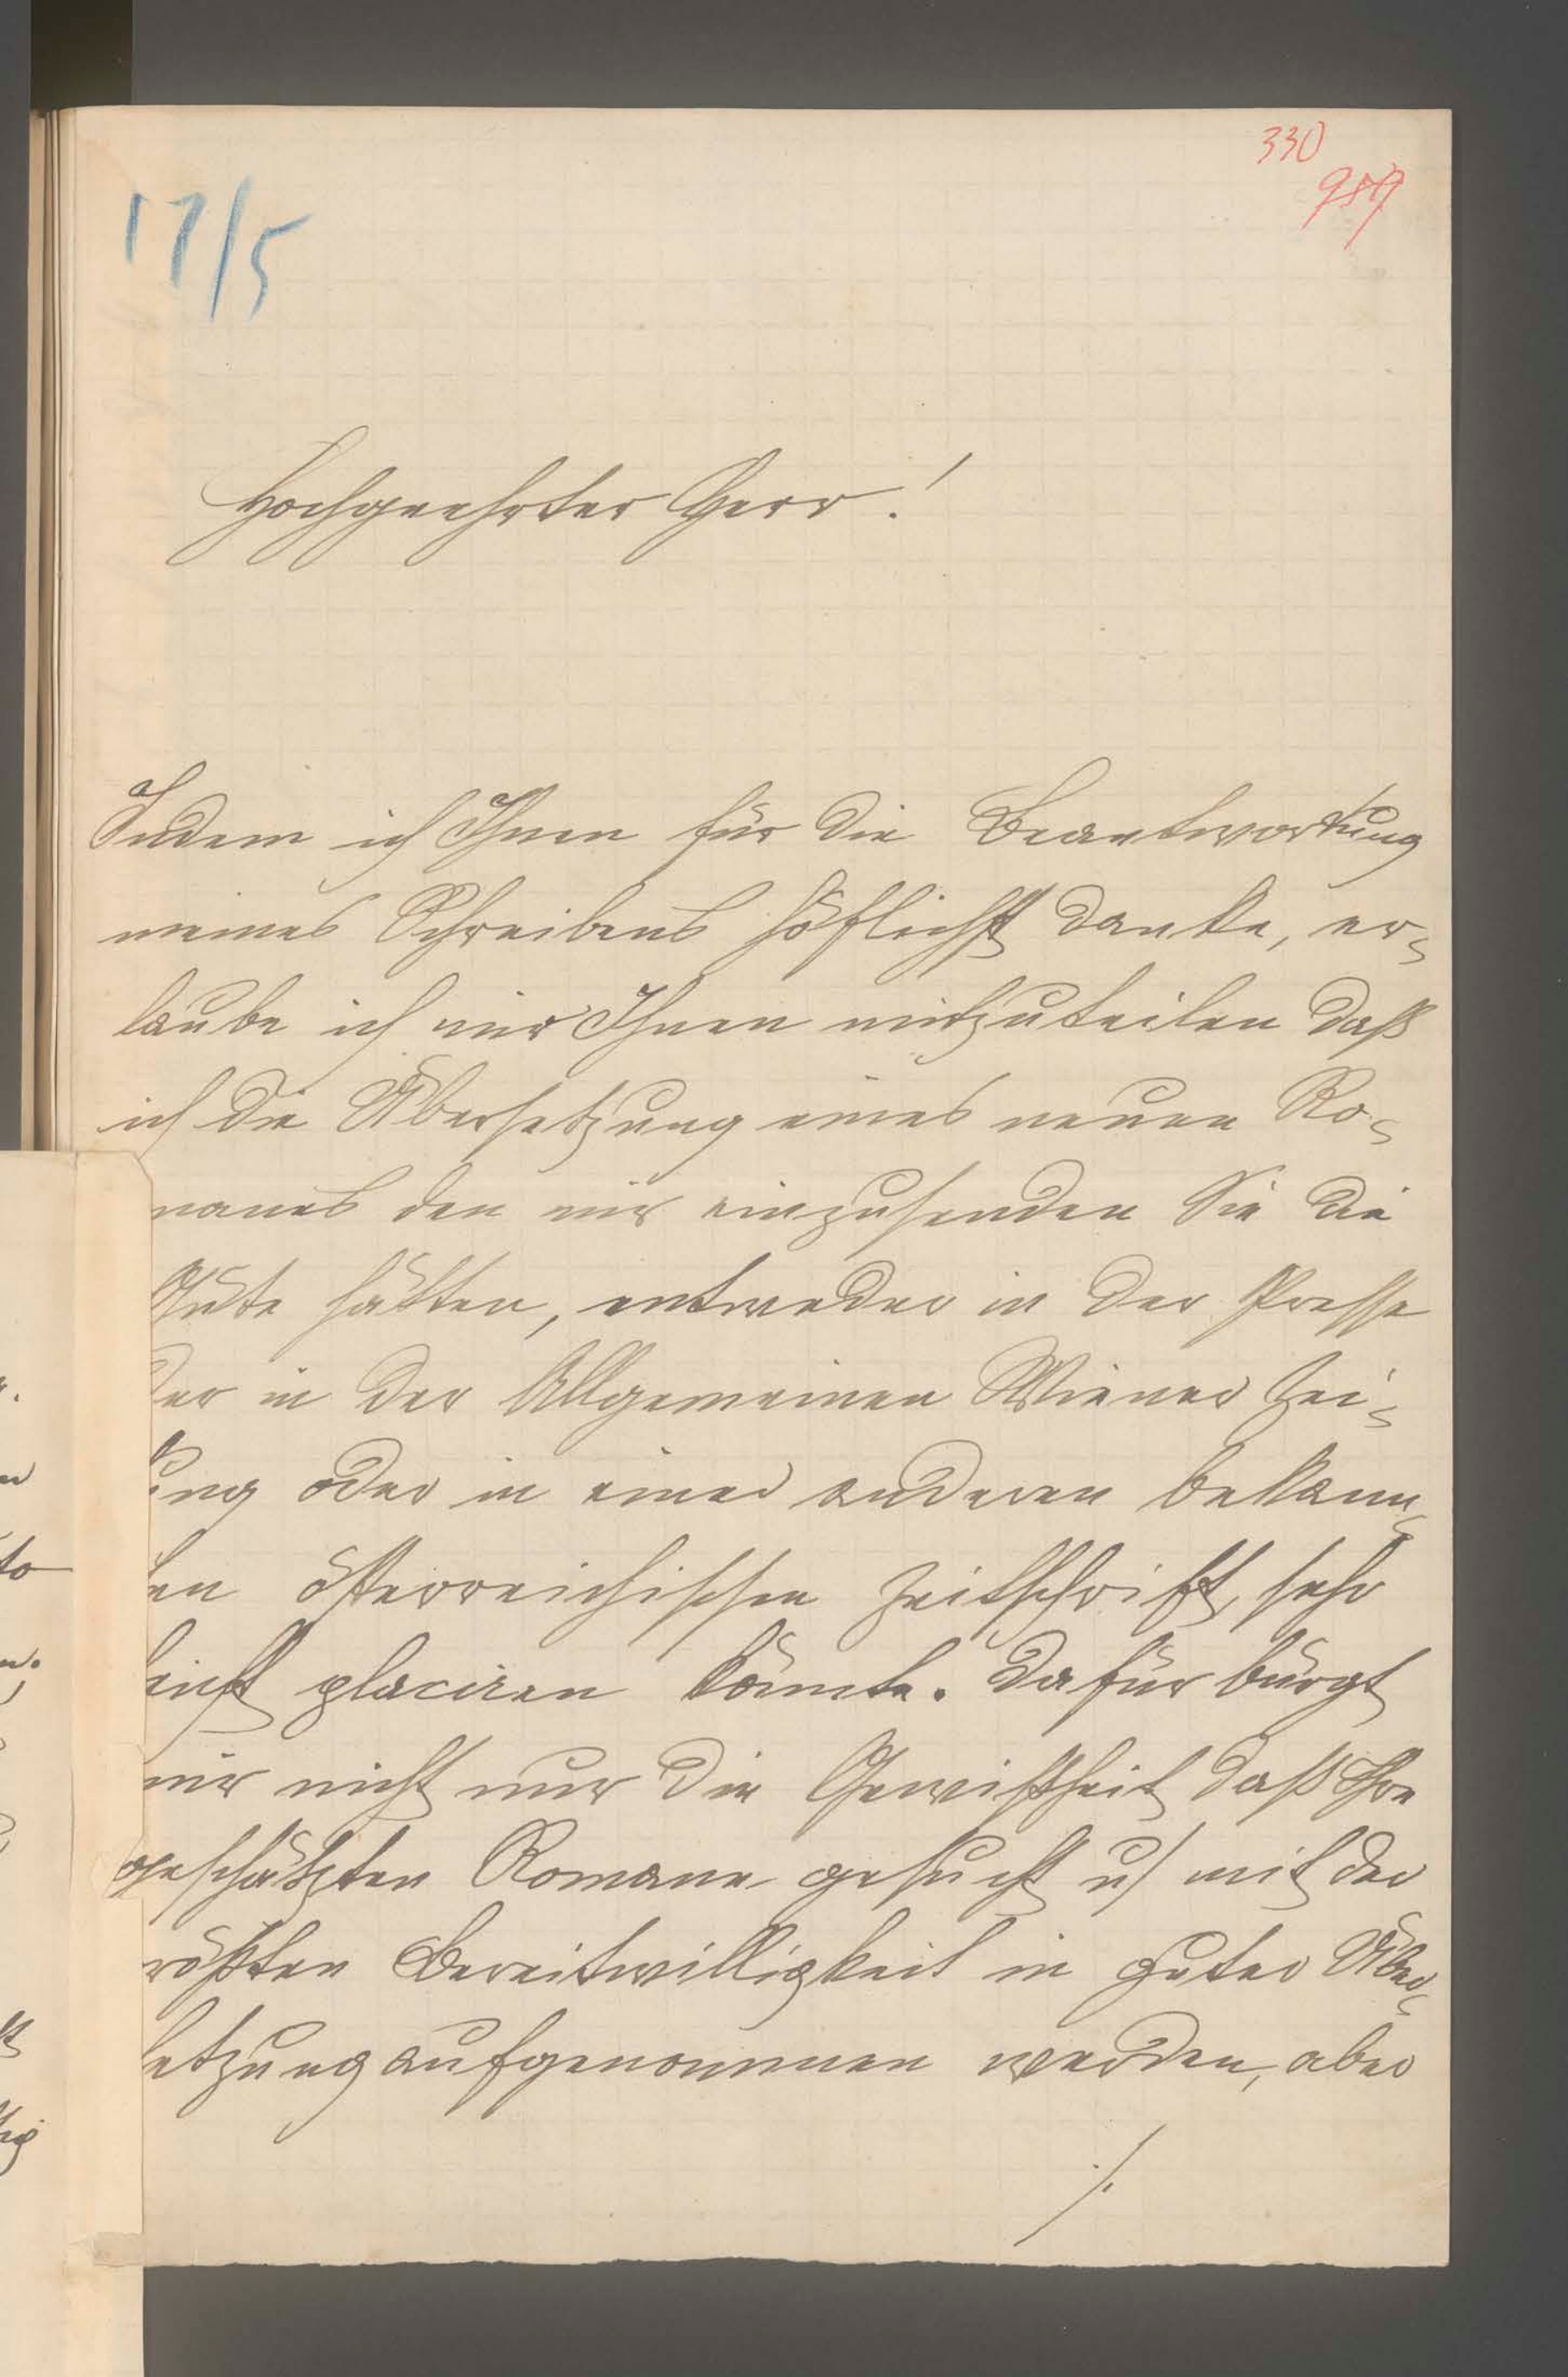 330
17/5
Hochgeehrter Herr!
Indem ich Ihnen für die Beantwortung
meines Schreibens höflichst danke, er-
laube ich mir Ihnen mitzuteilen daß
ich die Übersetzung eines neuen Ro-
manes den mir einzusenden Sie die
Güte hätten, entweder in der Presse
der in der Allgemeinen Wiener Zei-
ung oder in einer anderen bekann-
en österreichischen Zeitschrift, sehr
leicht placiren könnte. Dafür bürgt
mir nicht nur die Gewißheit daß Ihre
geschätzten Romane gesucht u/ mit der
rößten Bereitwilligkeit in guter Über-
setzung aufgenommen werden, aber
./.